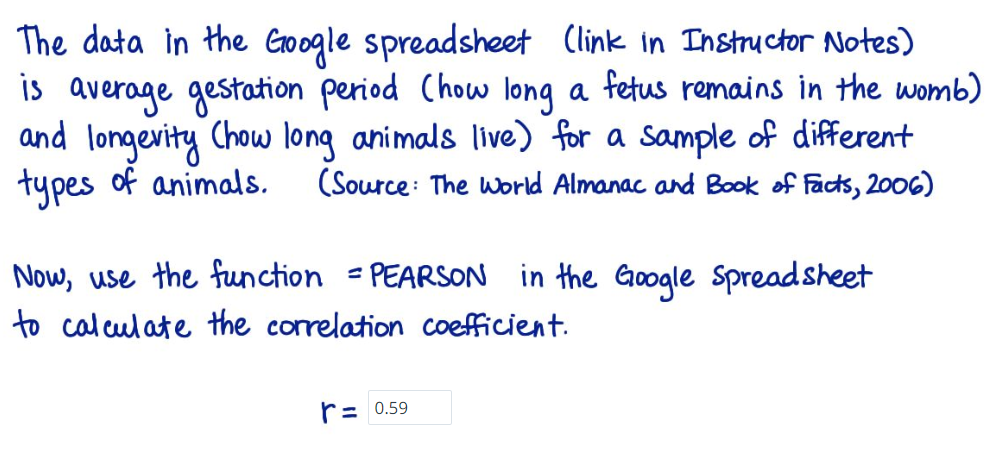 The data in the Google spreadsheet (link in Instructor Notes)
is average gestation period (how long a fetus remains in the womb)
and longevity (how long animals live) for a sample of different
types of animals. (Source: The World Almanac and Book of Facts, 2006)
Now, use the function =PEARSON in the Google Spreadsheet
to calculate the correlation coefficient.
r = 0.59